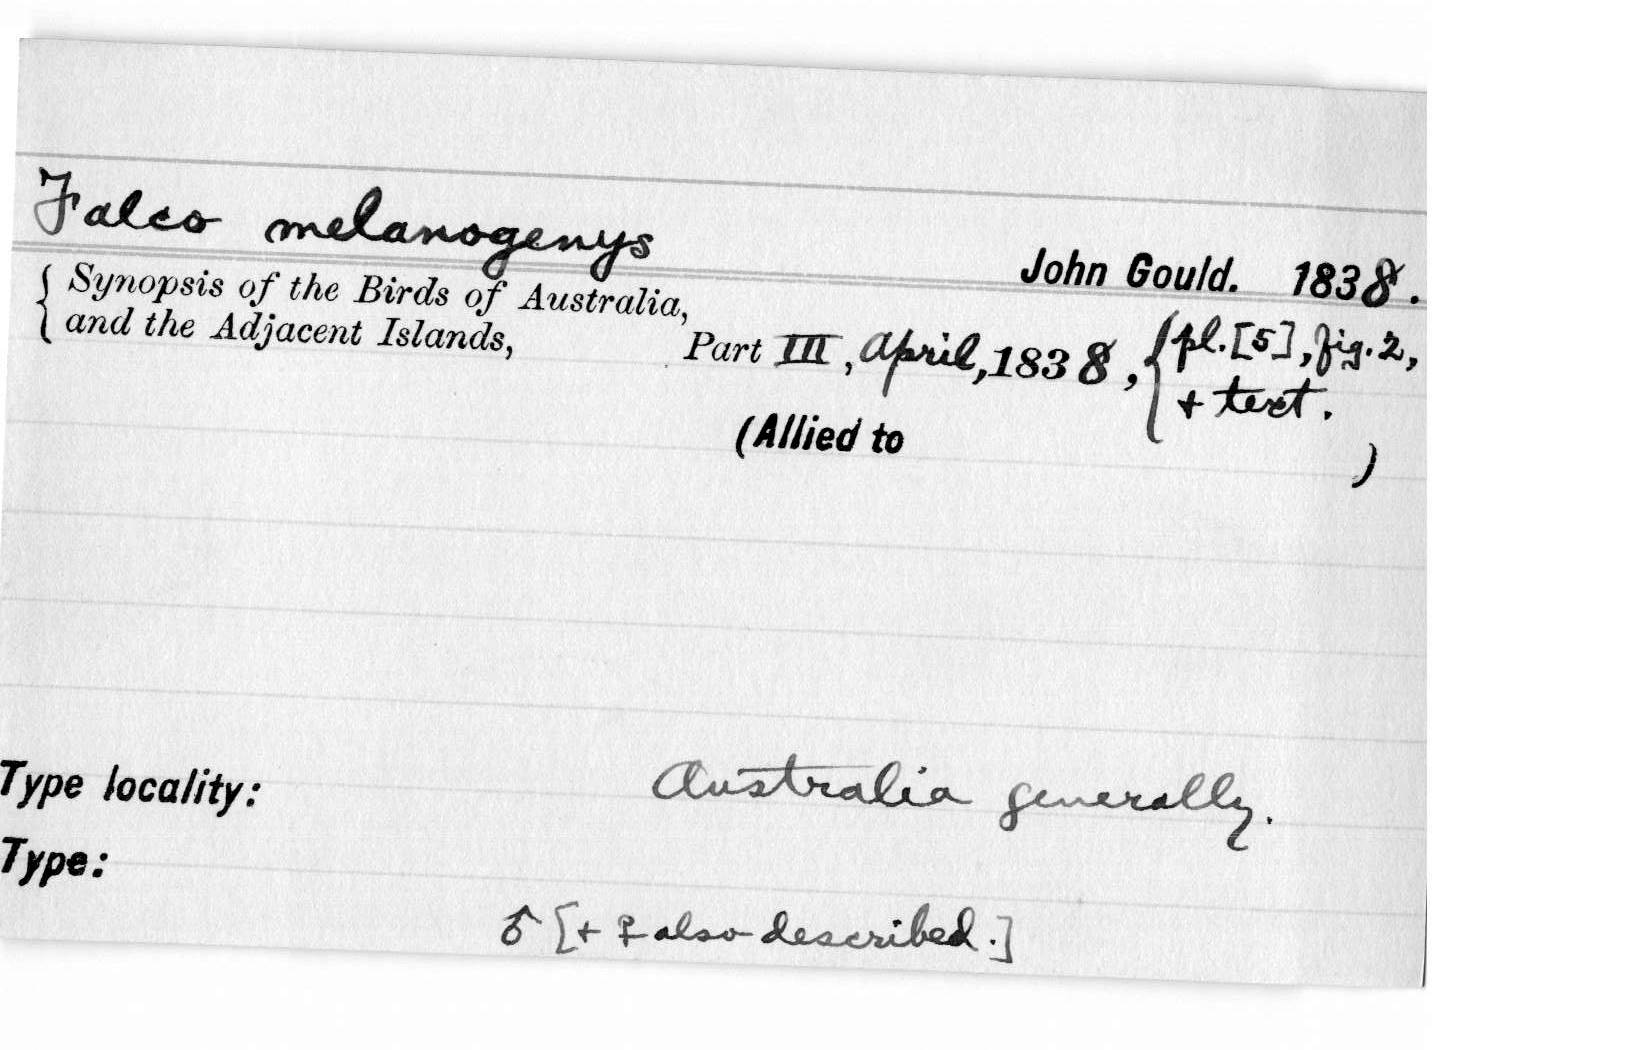 Falco melanogenys
John Gould. 1838.
{ Synopsis of the Birds of Australia,
{ and the Adjacent Islands, Part III, April, 1838, { pl. [5], fig. 2,
+ text.
(Allied to )
Type locality: Australia generally.
Type:
♂ [+ ♀ also described.]